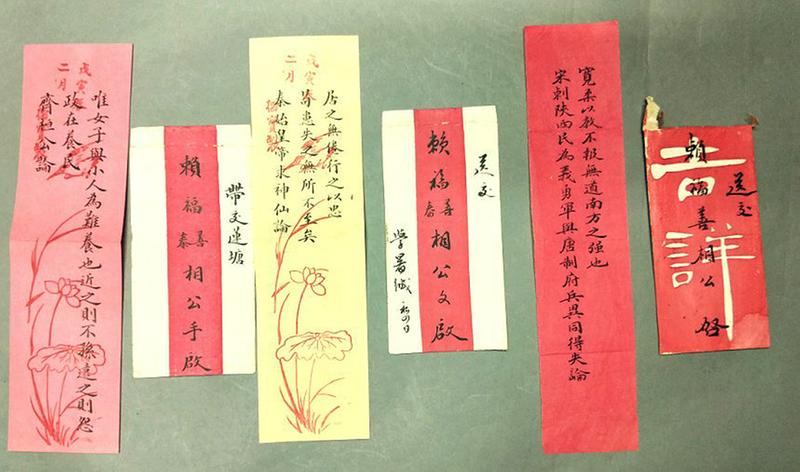 戊寅
二月
唯女子與小人為難養也近之則不孫遠之則怨
政在養民
齊桓公論
帶交蓮塘
賴福善泰相公手啟
戊寅
二月
居之無倦行之以忠
苟患失之無所不至矣
秦始皇帝求神仙論
送交
賴福善春相公文啟
學署緘
寬柔以教不報無道南方之强也
宋刺陝西民為義勇軍與唐制府兵異同得失論
送交
賴福善相公啓
吉詳